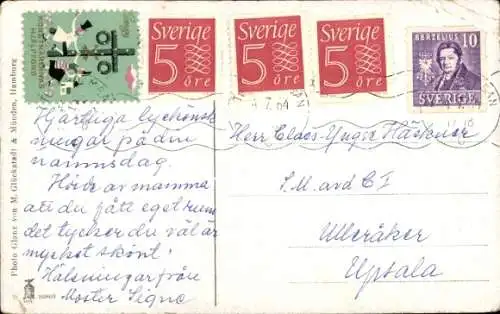 Sverige
5
öre
Sverige
5
öre
Sverige
5
öre
BERZELIUS 10
SVERIGE
7.64
Hjärtliga lyckönsk
ningar på din
namnsdag.
Hörde av mamma
att du fått eget rum
det tycker du väl är
mycket skönt.
Hälsningar från
Moster Signe
Herr Claes-Yngve
S.M. avd C I
Ulleråker
Upsala
Photo Glanz von M. Glückstadt & Münden, Hamburg